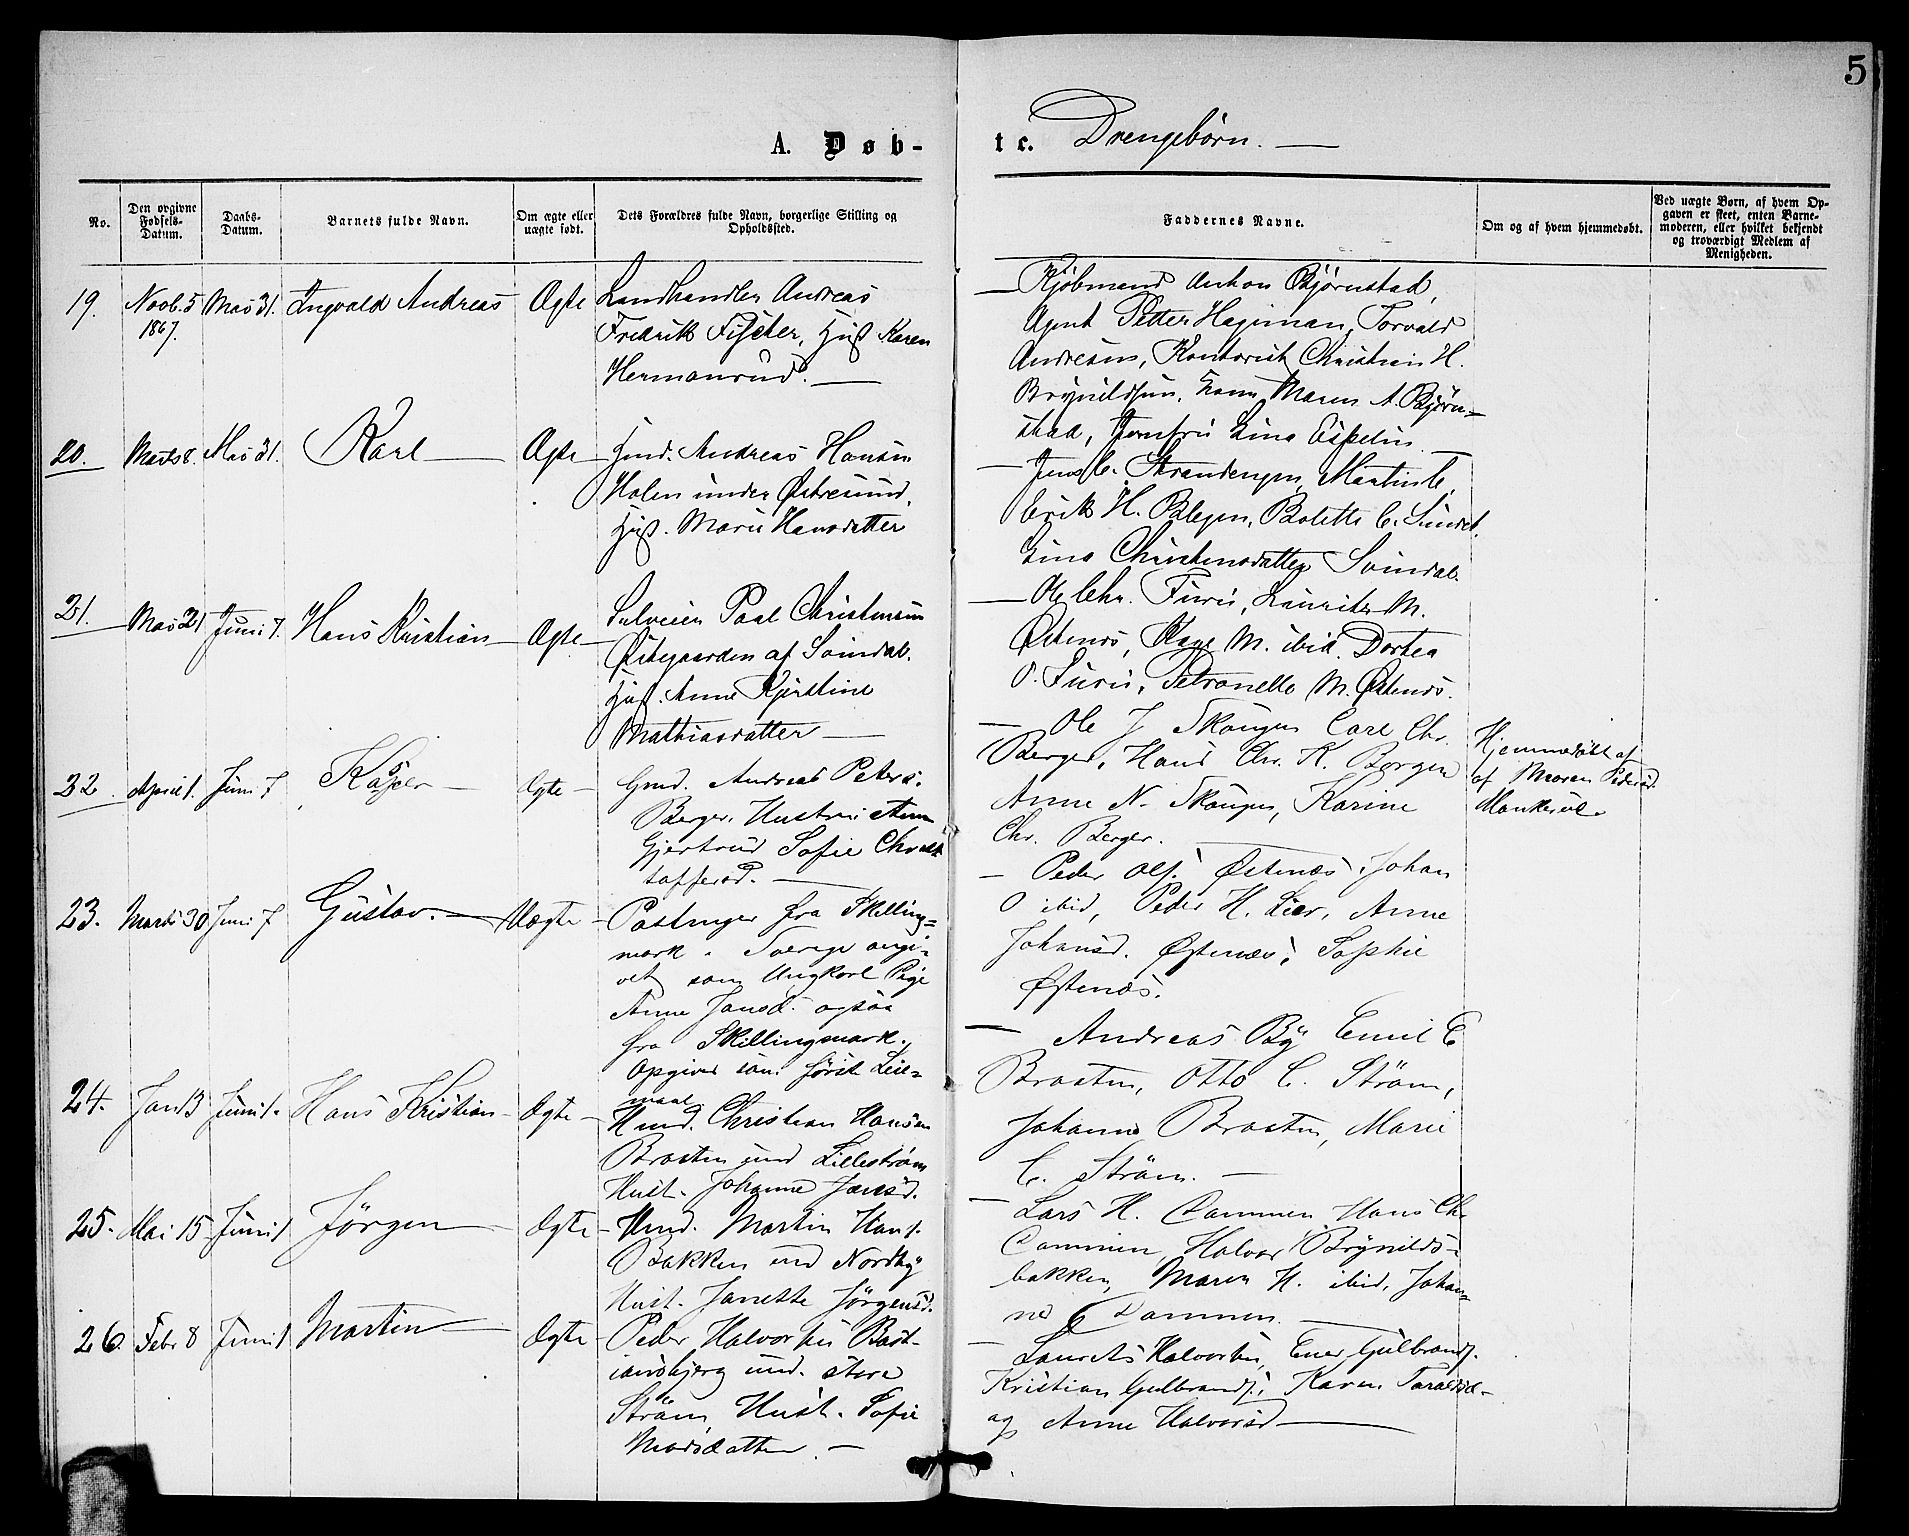 5
A. Døb-
te. Drengebørn. —
No.
Den opgivne Fødsels-Datum.
Daabs-Datum.
Barnets fulde Navn.
Om ægte eller uægte født.
Dets Forældres fulde Navn, borgerlige Stilling og Opholdssted.
Faddernes Navne.
Om og af hvem hjemmedøbt.
Ved uægte Børn, af hvem Opgaven er skeet, enten Barnemoderen, eller hvilket bekjendt og troværdigt Medlem af Menigheden.
19. Novb. 5 1867. Mai 31. Ingvald Andreas Ægte
Landhandler Andreas
Fredrik Fischer, Hust Karen
Hermansrud. —
— Kjøbmand Anton Bjørnstad,
Agent Petter Hagiman, Torvald
Andresen, Kontorist Christian H.
Brynildsen, Maren A. Bjørn-
stad, Jomfru Lina Espelin
20. Marts 8. Mai 31. Karl — Ægte —
Hmd. Andreas Hansen
Holen under Østresund,
Hust. Marie Hansdatter
— Jens C. Strandengen, Martin C.
Erik H. Blegen, Bolette C.
Lina Christensdatter Svindal
21. Mai 21 Juni 7. Hans Kristian — Ægte —
Selveier Paal Christensen
Østegaarden af Svindal.
Hust. Anne Kjerstine
Mathiasdatter —
— Ole Chr. Furu, Laurits M.
Østenes, Kaye M. ibid. Dortea
O. Furu, Petronelle M. Østenes.
22. April 1. Juni 7 Kasper — Ægte —
Gmd. Andreas Peters.
Berger. Hustru Anne
Gjertrud Sofie Christ
tofferd. —
— Ole J Skougen Carl Chr.
Berger, Hans Chr. K. Borgen
Anne N. Skougen, Karine
Chr. Berger. —
Hjemmedøbt af
af Maren Pedersd.
Mankerud —
23. Marts 30 Juni 7 Gustav. — Uægte —
Postinger fra Skilling=
mark i Sverige angi-
vet som Ungkarl Pige
Anne Jansd. ogsaa
fra Skillingmark.
Opgives som første Leie=
maal.
— Peder Ols. Østenæs, Johan
O ibid, Peder H. Lier, Anne
Johansd. Østenæs, Sophie
Østenæs.
24. Jan 13 Juni 1. Hans Kristian — Ægte —
Hmd. Christian Hansen
Braaten und Lillestrøm
Hust. Johanne Jansd.
— Andreas By Emil E
Braaten, Otto C. Strøm,
Johanne Braaten, Marie
C. Strøm. —
25. Mai 15 Juni 1 Jørgen — Ægte —
Hmd. Martin Hans.
Bakken und Nordby
Hust. Janette Jørgensd.
— Lars H. Dammen Hans Chr
Dammen, Halvor Brynilds-
bakken, Maren H. ibid, Johan-
ne C Dammen. —
26. Febr 8 Juni 1 Martin — Ægte —
Peder Halvorsen Bast-
iansbjerg und. store
Strøm, Hust. Sofie
Madsdatter. —
— Laurets Halvorsen, Ener Gulbrands.
Kristian Gulbrands., Karen Taraldsd —
og Anne Halvorsd —